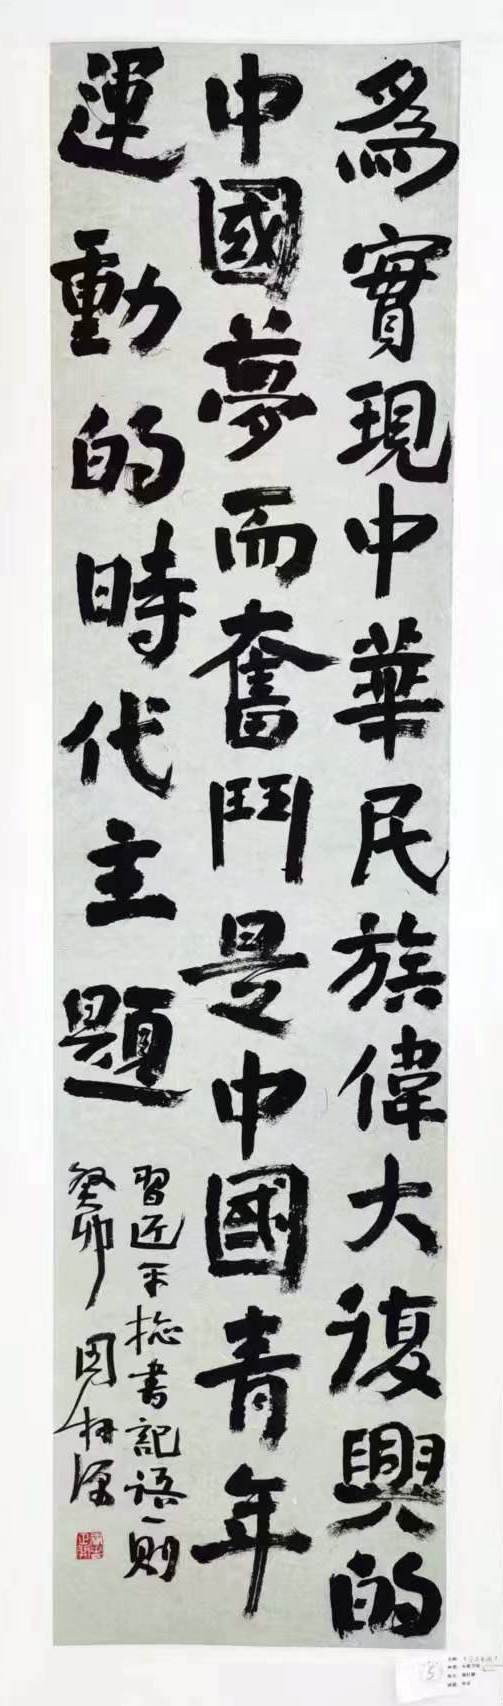 為實現中華民族偉大復興的
中國夢而奮鬥是中國青年
運動的時代主題
習近平總書記語一則
癸卯